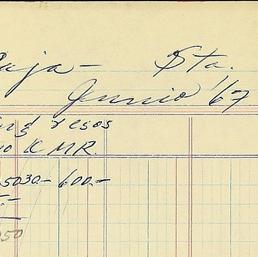 Caja - Sta.
Junio '67
ing resos
o K MR.
5030- 600.-
050